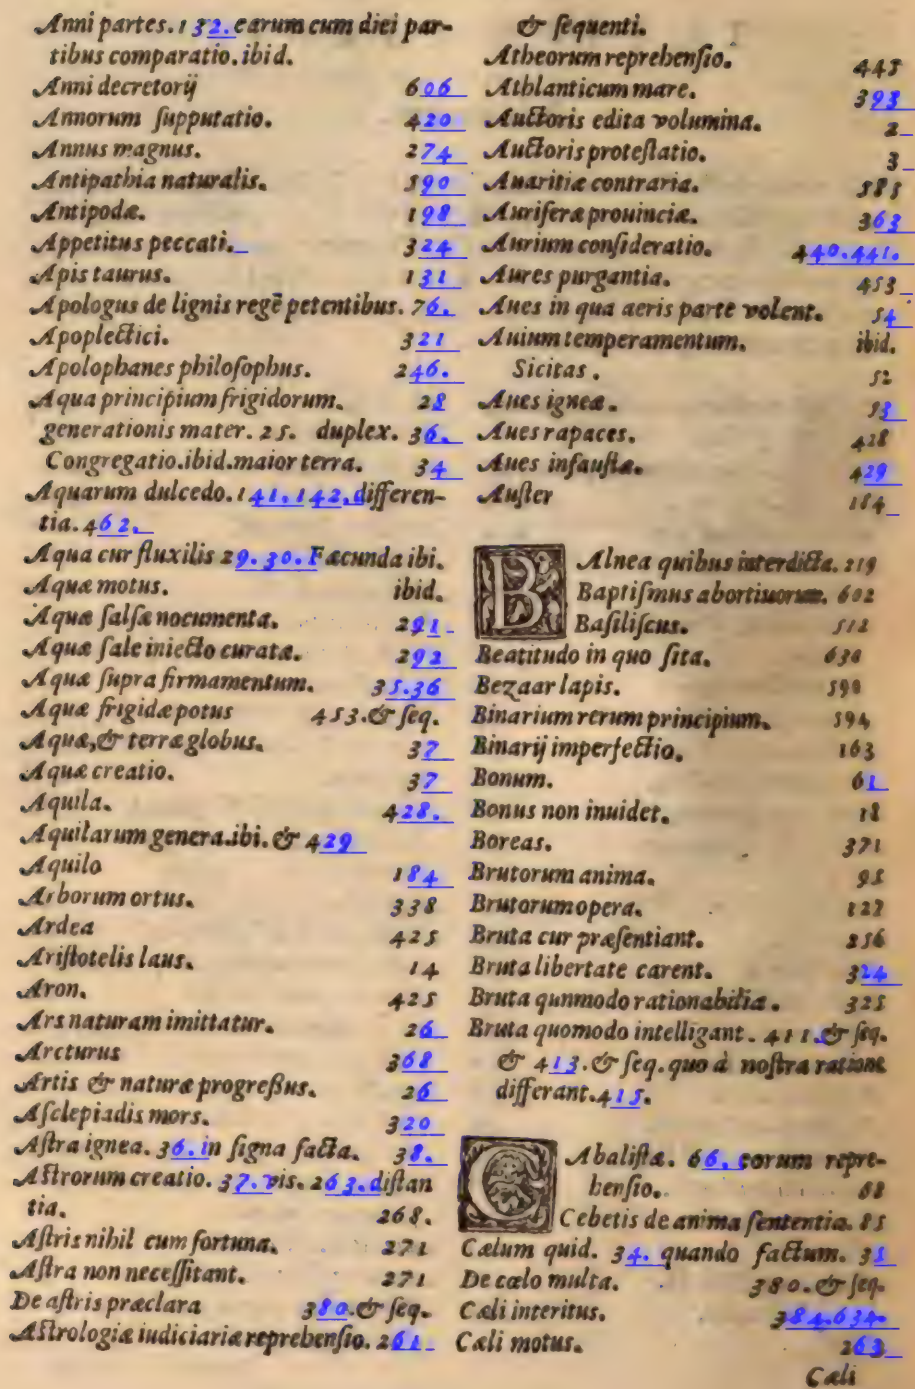 Anni partes. 132. earum cum diei par-
tibus comparatio. ibid.
Anni decretorij 606
Annorum ſupputatio. 420
Annus magnus. 274
Antipathia naturalis. 590
Antipodæ. 198
Appetitus peccati. 324
Apis taurus. 131
Apologus de lignis regē petentibus. 76.
Apoplectici. 321
Apolophanes philoſophus. 246.
Aqua principium frigidorum. 28
generationis mater. 25. duplex. 36.
Congregatio. ibid. maior terra. 34
Aquarum dulcedo. 141. 142. differen-
tia. 462.
Aqua cur fluxilis 29. 30. Fæcunda ibi.
Aquæ motus. ibid.
Aquæ ſalſæ nocumenta. 291
Aquæ ſale iniecto curatæ. 292
Aquæ ſupra firmamentum. 35.36
Aquæ frigidæ potus 453. & ſeq.
Aquæ, & terræ globus. 37
Aquæ creatio. 37
Aquila. 428.
Aquilarum genera. ibi. & 429
Aquilo 184
Arborum ortus. 338
Ardea 425
Ariſtotelis laus. 14
Aron. 425
Ars naturam imittatur. 26
Arcturus 368
Artis & naturæ progreßus. 26
Aſclepiadis mors. 320
Aſtra ignea. 36. in ſigna facta. 38.
Aſtrorum creatio. 37. vis. 263. diſtan
tia. 268.
Aſtris nihil cum fortuna. 271
Aſtra non neceſſitant. 271
De aſtris præclara 380. & ſeq.
Aſtrologiæ iudiciariæ reprehenſio. 261
& ſequenti.
Atheorum reprehenſio. 445
Athlanticum mare. 393
Auctoris edita volumina. 2
Auctoris proteſtatio. 3
Auaritiæ contraria. 585
Auriferæ prouinciæ. 363
Aurium conſideratio. 440.441.
Aures purgantia. 453
Aues in qua aeris parte volent. 54
Auium temperamentum. ibid.
Sicitas. 52
Aues igneæ. 53
Aues rapaces. 428
Aues infauſtæ. 429
Auſter 184
BAlnea quibus interdicta. 219
Baptiſmus abortiuorum. 602
Baſiliſcus. 512
Beatitudo in quo ſita. 630
Bezaar lapis. 590
Binarium rerum principium. 594
Binarij imperfectio. 163
Bonum. 61
Bonus non inuidet. 18
Boreas. 371
Brutorum anima. 95
Brutorum opera. 127
Bruta cur præſentiant. 256
Bruta libertate carent. 324
Bruta qunmodo rationabilia. 325
Bruta quomodo intelligant. 411. & ſeq.
& 413. & ſeq. quo à noſtra ratione
differant. 415.
CAbaliſtæ. 66. eorum repre-
henſio. 68
Cebetis de anima ſententia. 85
Cælum quid. 34. quando factum. 35
De cælo multa. 380. & ſeq.
Cæli interitus. 384.634.
Cæli motus. 263
Cæli